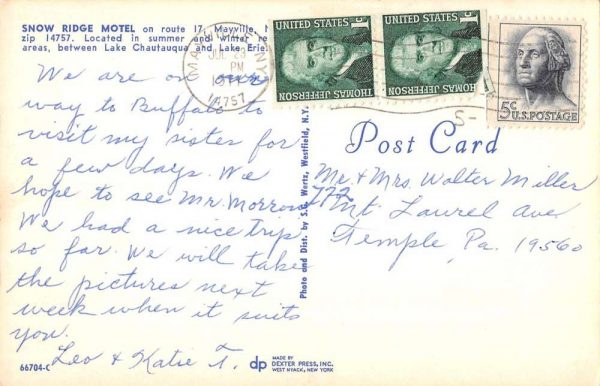 SNOW RIDGE MOTEL on route 17, Mayville, N
zip 14757. Located in summer and winter re
areas, between Lake Chautauqua and Lake Erie.
MAYVILLE NY
JUL 23
PM
14757
UNITED STATES
1c
THOMAS JEFFERSON
UNITED STATES
1c
THOMAS JEFFERSON
5c
U.S. POSTAGE
We are on our
way to Buffalo to
visit my sister for
a few days. We
hope to see Mr. Morrow
We had a nice trip
so far. We will take
the pictures next
week when it suits
you.
Leo & Katie T.
Photo and Dist. by S. G. Wertz, Westfield, N.Y.
Post Card
Mr. & Mrs. Walter Miller
772 Mt. Laurel Ave
Temple Pa. 19560
66704-C
dp
MADE BY
DEXTER PRESS, INC.
WEST NYACK, NEW YORK